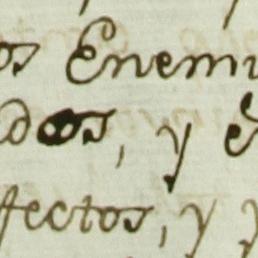 os Enemi
dos, y é
fectos, y y